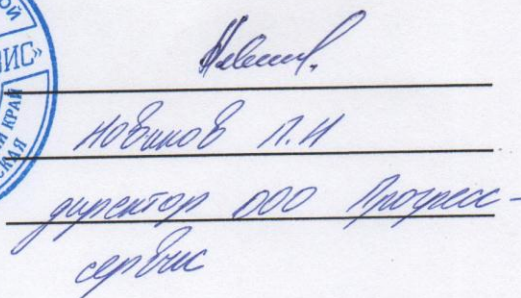 ОЙ
ИС»
Й КРАЙ
СКАЯ
Новиков П.И
директор ООО Прогресс-
сервис